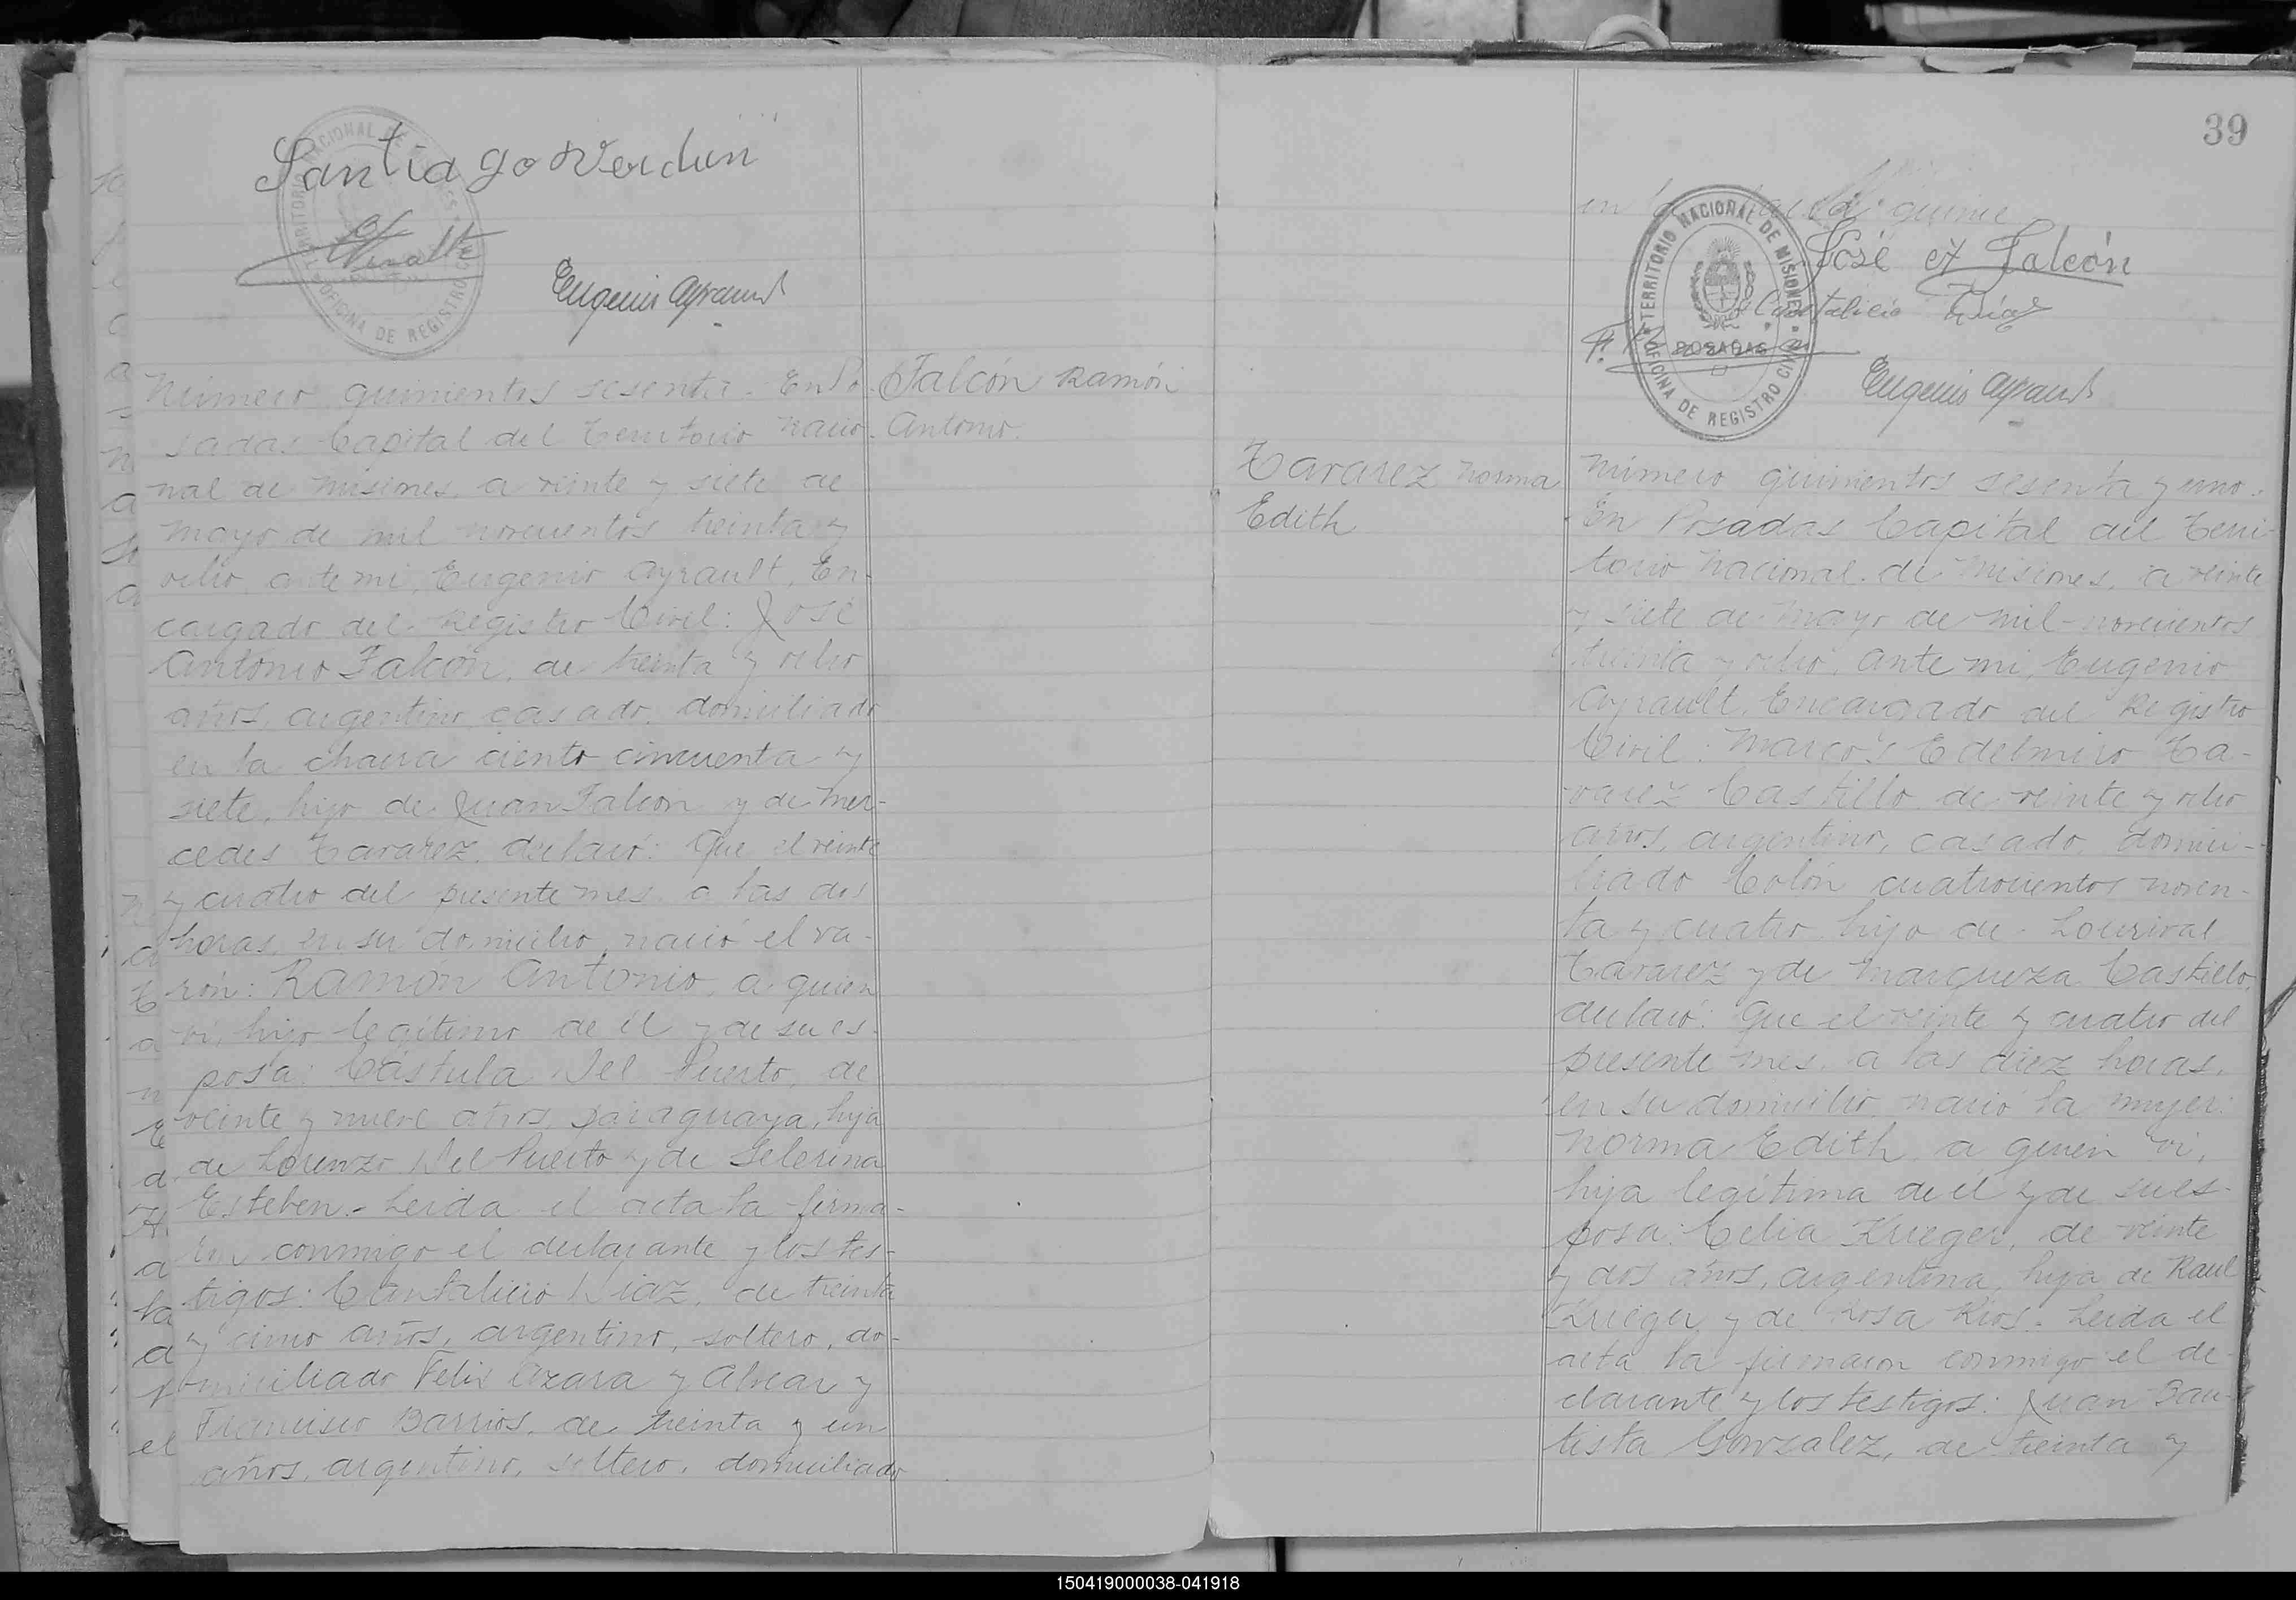 Santiago Verdun
Eugenio Ayrault
Número quinientos sesenta. En Po-
sadas Capital del Territorio Nacio-
nal de Misiones, a veinte y siete de
mayo de mil novecientos treinta y
ocho, ante mi, Eugenio Ayrault, En-
cargado del Registro Civil: José
Antonio Falcón, de treinta y ocho
años, argentino, casado, domiciliado
en la chacra ciento cincuenta y
siete, hijo de Juan Falcón y de Mer-
cedes Tavarez, declaró: Que el veinte
y cuatro del presente mes, a las dos
horas, en su domicilio, nació el va-
rón: Ramón Antonio, a quien
vi, hijo legítimo de él y de su es-
posa: Cástula Del Puerto, de
veinte y nueve años, paraguaya, hija
de Lorenzo Del Puerto y de Selerina
Esteben.- Leida el acta la firma-
ron conmigo el declarante y los tes-
tigos: Cantalicio Diaz, de treinta
y cinco años, argentino, soltero, do-
miciliado Felix Azara y Alvear y
Francisco Barrios, de treinta y un
años, argentino, soltero, domiciliado
Falcón Ramón
Antonio.
39
en quince
José A Falcón
Cantalicio Díaz
TERRITORIO NACIONAL DE MISIONES
POSADAS
OFICINA DE REGISTRO CIVIL
Eugenio Ayrault
Tavarez Norma
Edith
Número quinientos sesenta y uno.
En Posadas Capital del Terri-
torio Nacional de Misiones, a veinte
y siete de Mayo de mil novecientos
treinta y ocho, ante mi, Eugenio
Ayrault, Encargado del Registro
Civil: Marcos Edelmiro Ta-
varez Castillo, de veinte y ocho
años, argentino, casado, domici-
liado Colón cuatrocientos noven-
ta y cuatro, hijo de Lourival
Tavarez y de Marqueza Castillo,
declaró: Que el veinte y cuatro del
presente mes, a las diez horas,
en su domicilio, nació la mujer:
Norma Edith, a quien vi,
hija legítima de él y de su es-
posa: Celia Krieger, de veinte
y dos años, argentina, hija de Raul
Krieger y de Rosa Rios.- Leida el
acta la firmaron conmigo el de-
clarante y los testigos: Juan Bau-
tista Gonzalez, de treinta y
150419000038-041918